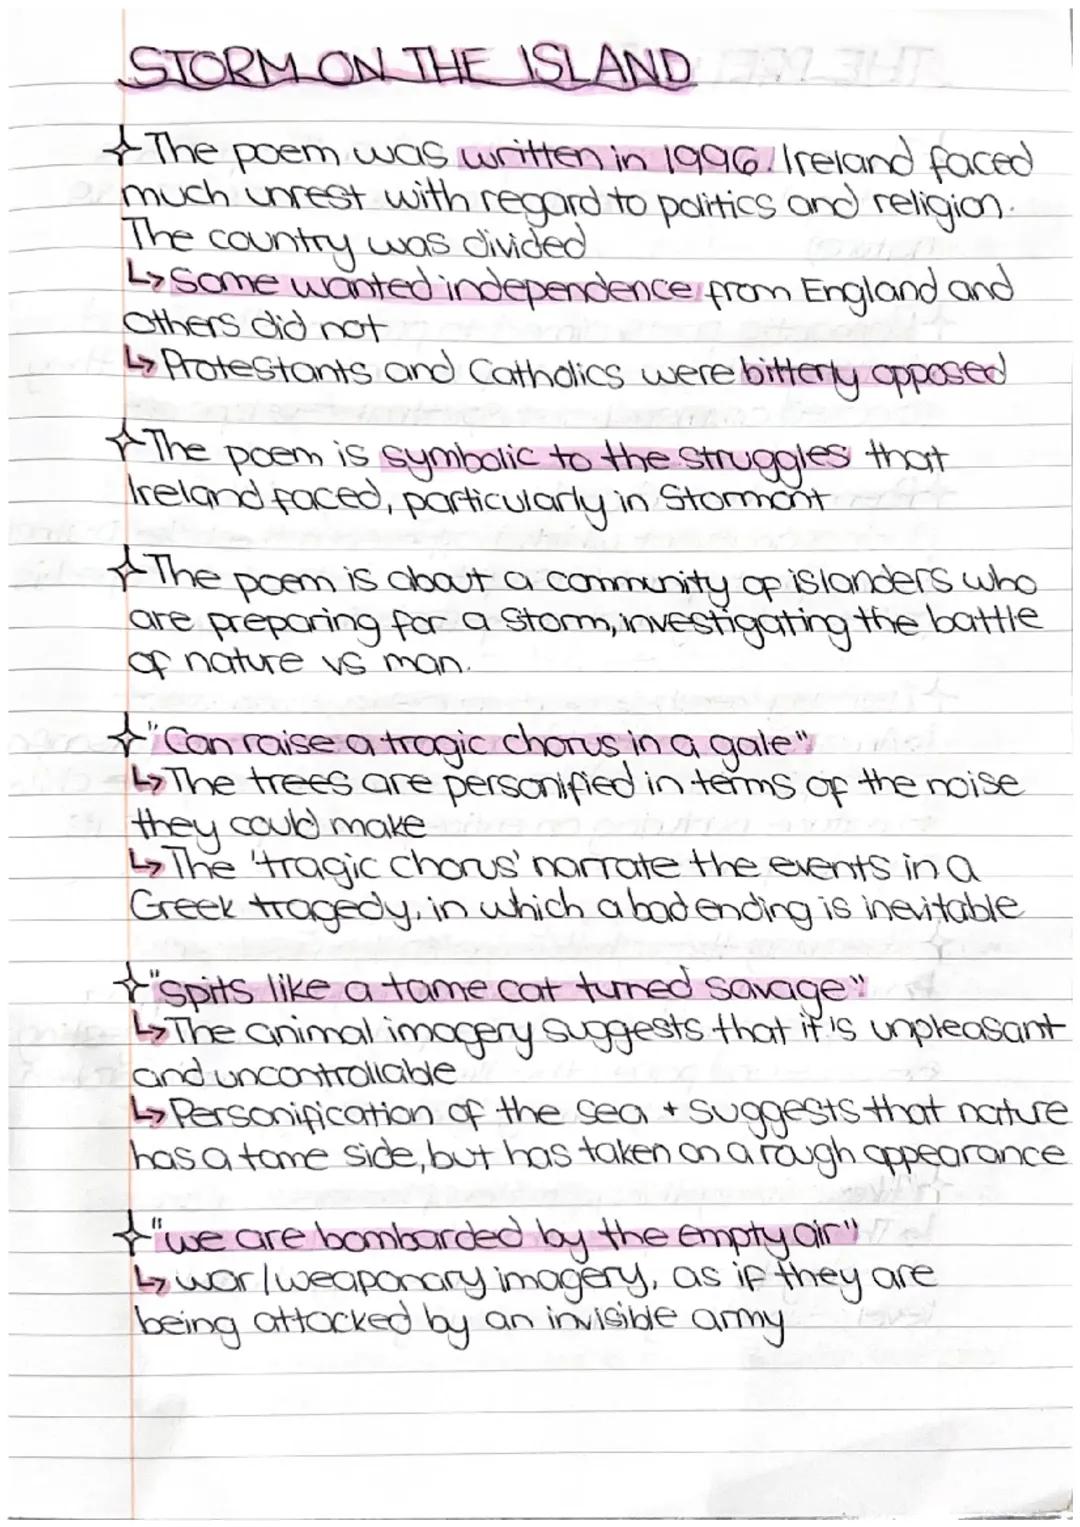 STORM ON THE ISLAND
The poem was written in 1996. Ireland faced
much unrest with regard to politics and religion.
The country was divided
↳ Some wanted independence from England and
others did not
↳ Protestants and Catholics were bitterly opposed
The poem is symbolic to the struggles that
Ireland faced, particularly in Stormont
The poem is about a community of islanders who
are preparing for a storm, investigating the battle
of nature vs man.
"Can raise a tragic chorus in a gale"
↳ The trees are personified in terms of the noise
they could make
↳ The 'tragic chorus' narrate the events in a
Greek tragedy, in which a bad ending is inevitable
"spits like a tame cat turned savage"
↳ The animal imagery suggests that it's unpleasant
and uncontrollable
↳ Personification of the sea + suggests that nature
has a tame side, but has taken on a rough appearance
"we are bombarded by the empty air"
↳ war/weaponary imagery, as if they are
being attacked by an invisible army